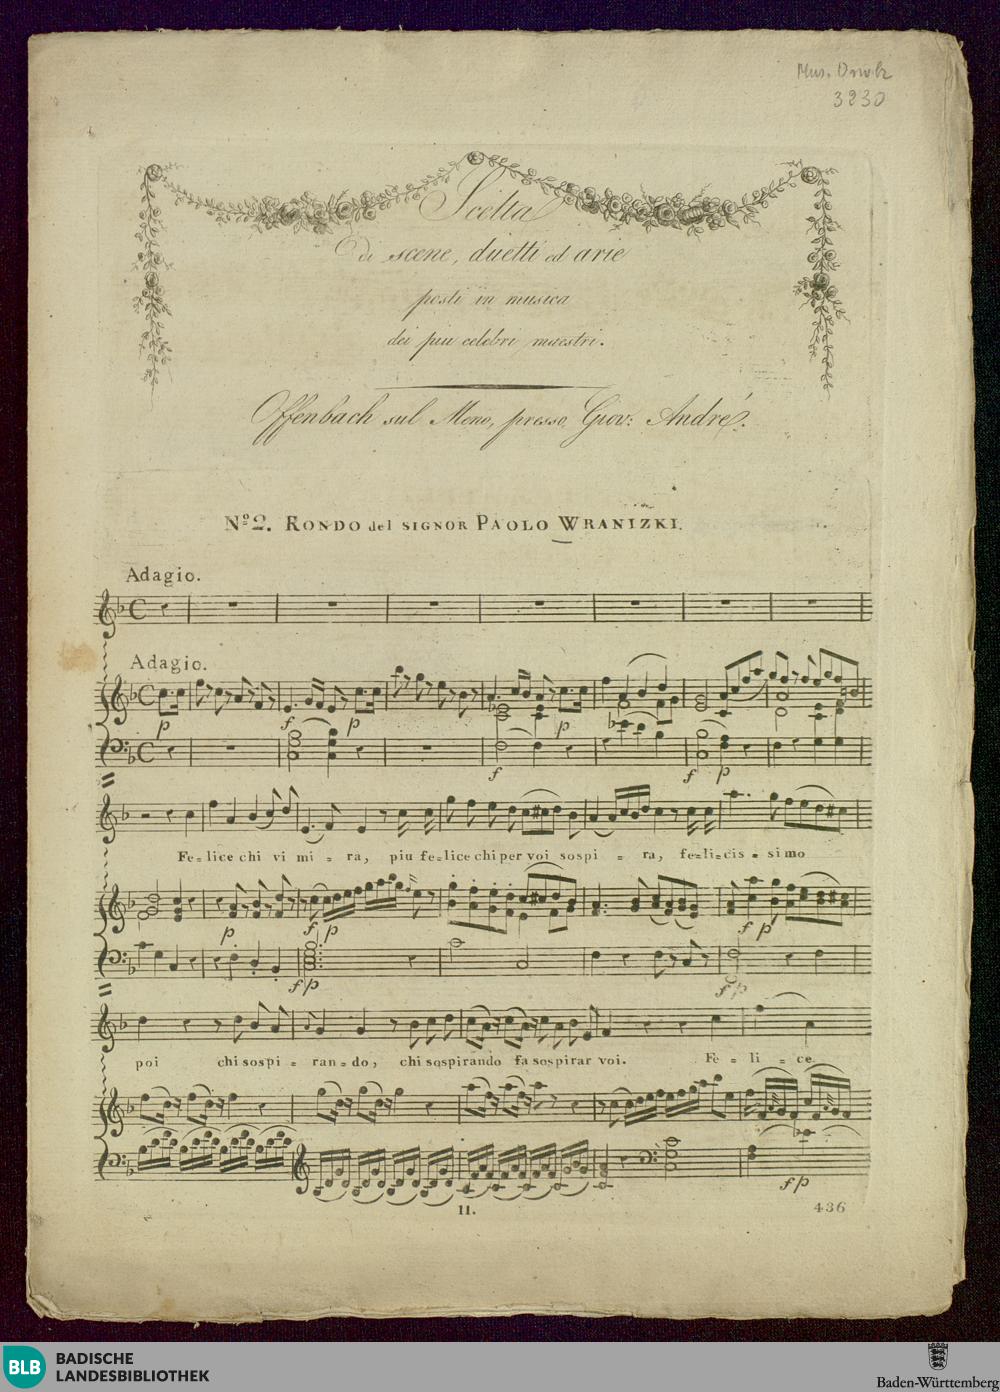 Mus. Druck
3230
Scelta
di scene, duetti ed arie
posti in musica
dei piu celebri maestri.
Offenbach sul Meno, presso Giov: André.
Nº 2. RONDO del SIGNOR PAOLO WRANIZKI.
Adagio.
Adagio.
p f p p
f f p
Fe=lice chi vi mi = ra, piu fe=lice chi per voi sospi = ra, fe=li=cis = simo
p f p f p
f p f p
poi chi sospi = ran=do, chi sospirando fa sospirar voi. Fe = li = ce
f p
11.
436
BLB BADISCHE
LANDESBIBLIOTHEK
Baden-Württemberg